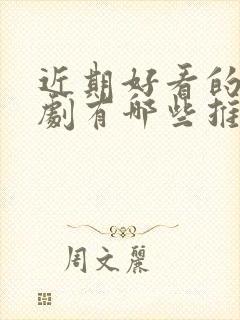 近期好看的
劇有哪些推
周文麗